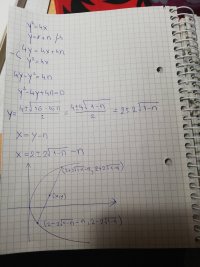 y²=4x
y=x+n /·4
4y=4x+4n
y²=4x
4y-y²=4n
y²-4y+4n=0
y=(4±√(16-16n))/2=(4±4√(1-n))/2=2±2√(1-n)
x=y-n
x=2±2√(1-n)-n
(2-2√(1-n)-n, 2-2√(1-n))